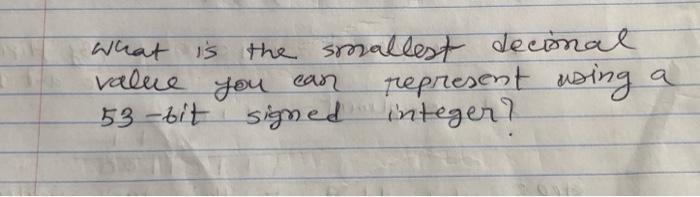 What is the smallest decimal
value you can represent using a
53-bit signed integer?